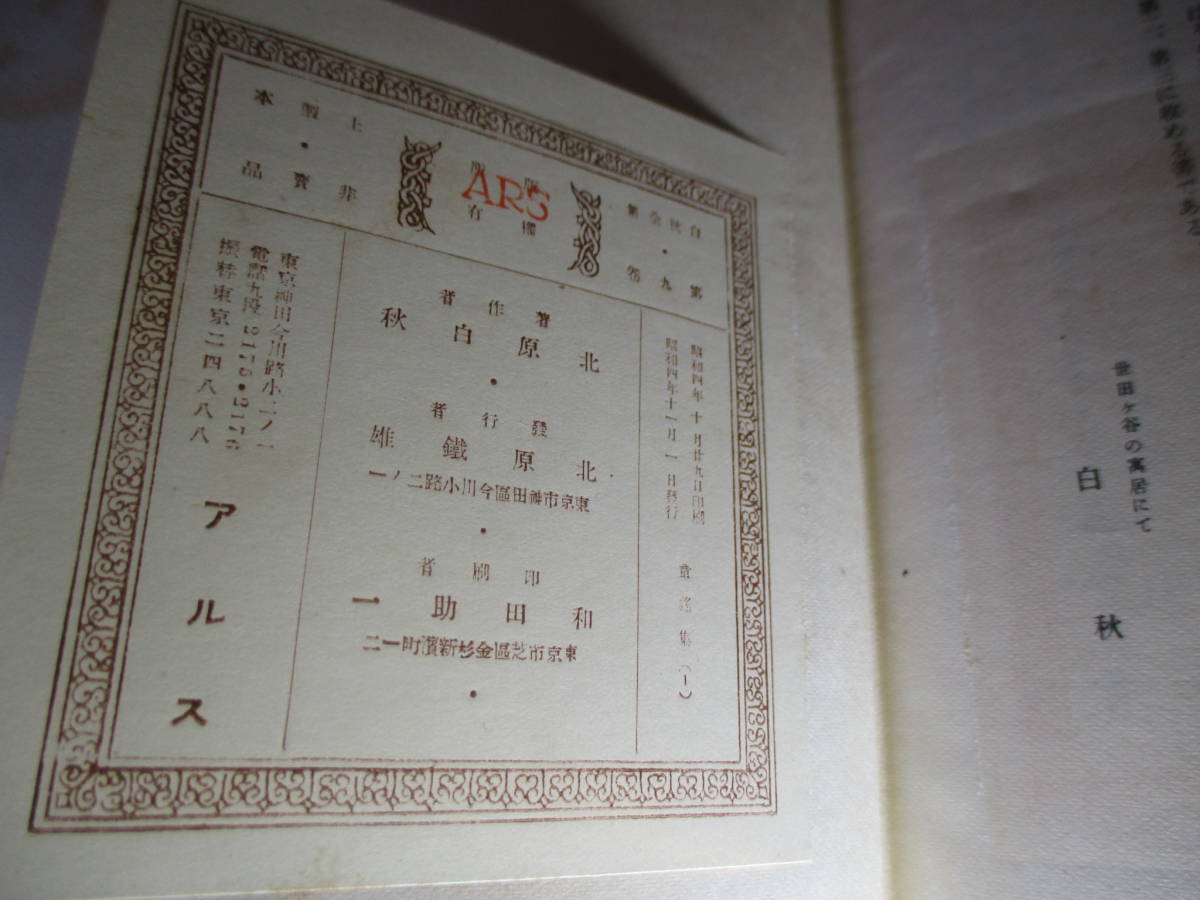 第二、第三に收める筈である
世田ヶ谷の寓居にて
白秋
白秋全集・第九卷
版權
ARS
所有
上製本・非賣品
昭和四年十月廿九日印刷
昭和四年十一月一日發行
童謠集(1)
著作者
北原白秋
・
發行者
北原鐵雄
東京市神田區今川小路二ノ一
・
印刷者
和田助一
東京市芝區金杉新濱町一二
・
東京神田今川路小二ノ一
電話九段2175・2176
振替東京二四八八八
アルス